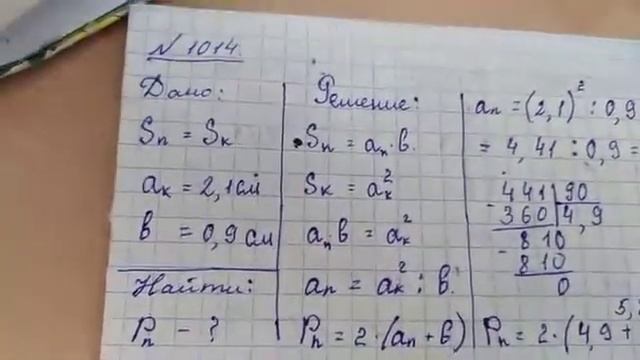 N 1014.
Дано:
Sп = Sк
aк = 2,1 см
в = 0,9 см
Найти:
Pп - ?
Решение:
Sп = aп · в.
Sк = aк²
aп в = aк²
aп = aк² : в.
Pп = 2 · (aп + в)
aп = (2,1)² : 0,9
= 4,41 : 0,9 =
- 441 | 90
360 | 4,9
- 810
810
0
5,
Pп = 2 · (4,9 +